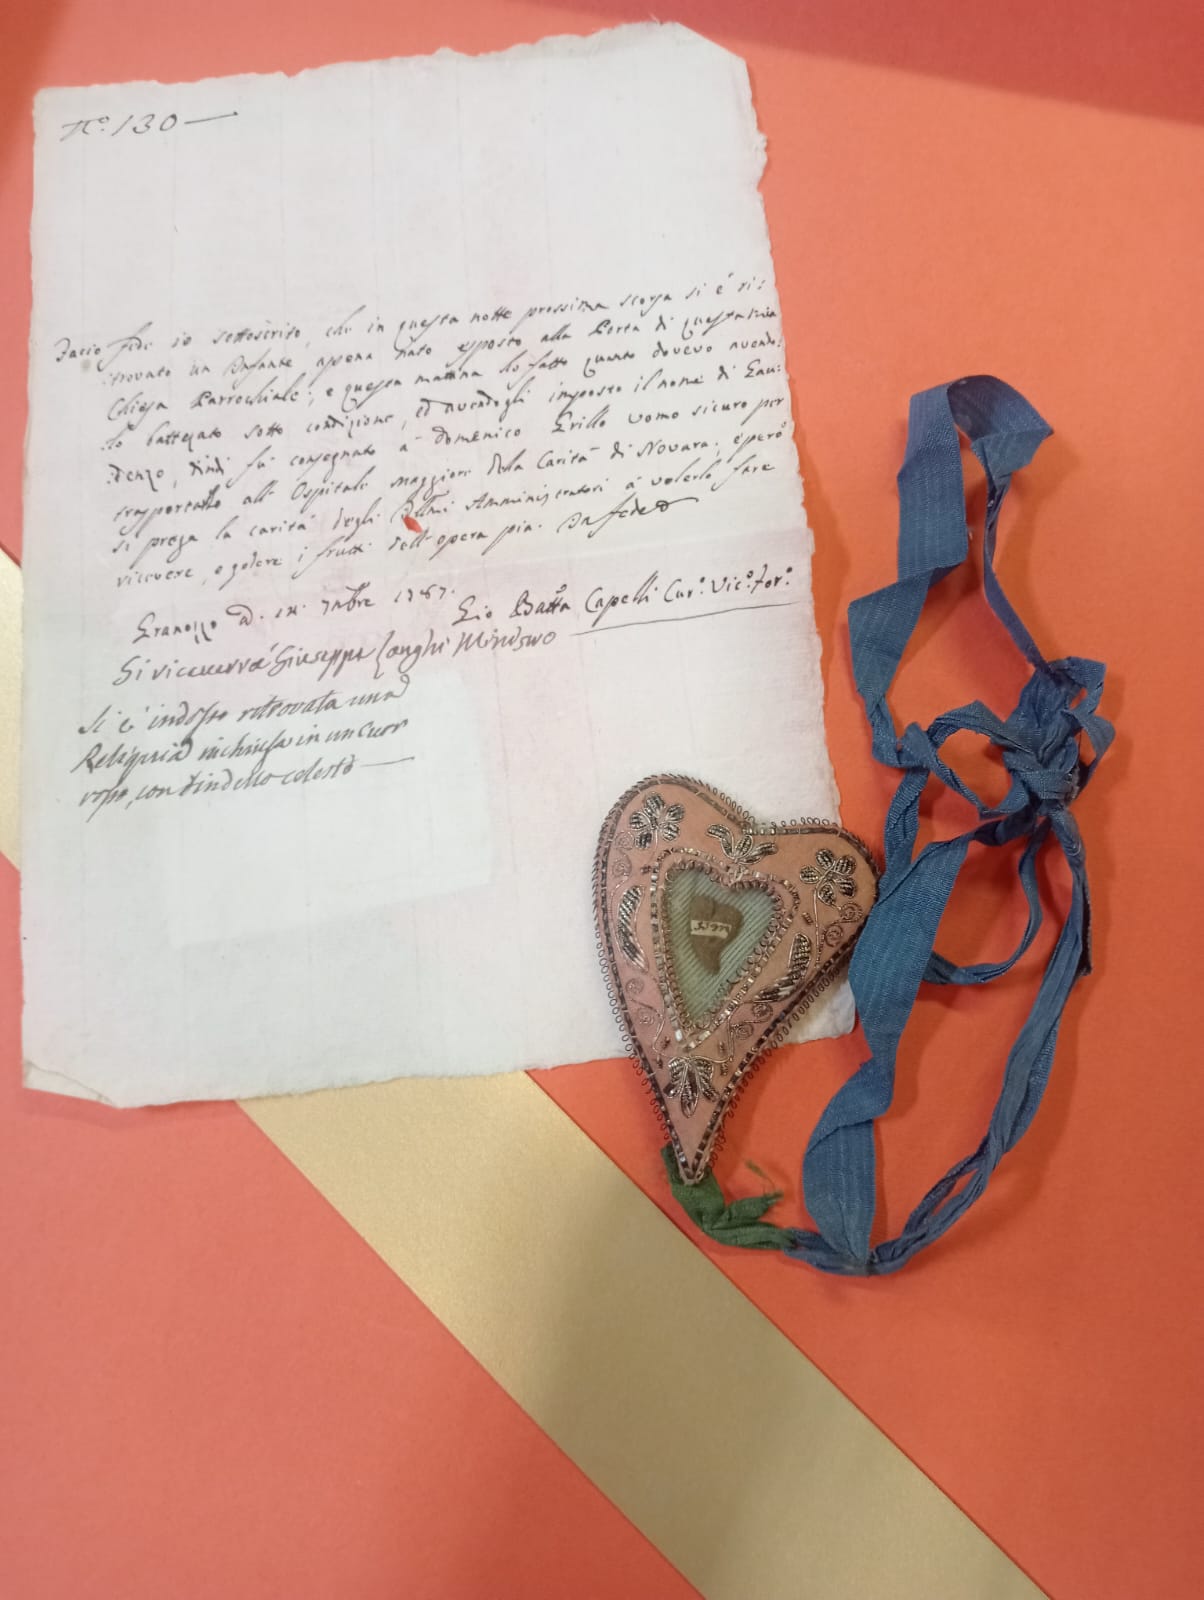 N.º 130 —
Faccio fede io sottoscritto, che in questa notte prossima scorsa si è ri:
:trovato un Infante appena nato esposto alla Porta di questa mia
Chiesa Parrochiale; e questa mattina hò fatto quanto dovevo avendo:
:lo battezato sotto condizione, ed avendogli imposto il nome di Gau:
:denzo, indi fù consegnato à Domenico Grillo uomo sicuro per
trasportarlo all' Ospitale maggiore della Carità di Novara; e però
si prega la carità degli Amministratori à volerlo fare
ricevere, e godere i frutti dell' opera pia. In fede
Granozzo 7mbre 1767.
Gio Batta Capelli Cur.º Vic.º For.º
Si riceverà Giuseppe Langhi Ministro
Si è indosso ritrovata una
Reliquia inchiusa in un cuor
rosso, con bindello celeste —